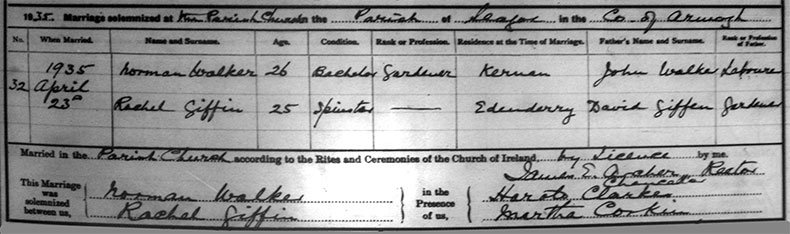 1935. Marriage solemnized at the Parish Church in the Parish of Seagoe in the Co. of Armagh
No. When Married. Name and Surname. Age. Condition. Rank or Profession. Residence at the Time of Marriage. Father's Name and Surname. Rank or Profession of Father.
32 1935 April 23rd
Norman Walker 26 Bachelor Gardener Kernan John Walker Labourer
Rachel Giffin 25 Spinster — Edenderry David Giffen Gardener
Married in the Parish Church according to the Rites and Ceremonies of the Church of Ireland, by Licence by me.
James E. Rector
This Marriage was solemnized between us,
Norman Walker
Rachel Giffin
in the Presence of us,
Harold Clarke
Martha